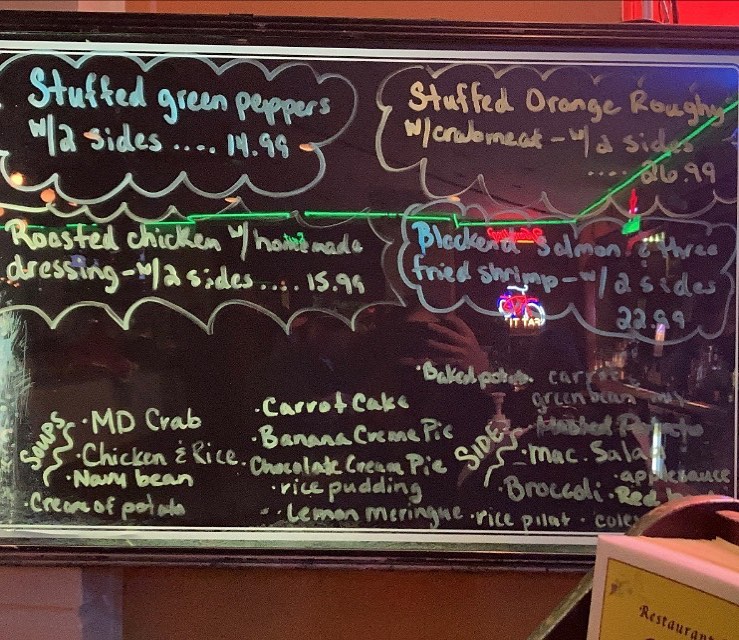 Stuffed green peppers
w/2 sides .... 14.99
Stuffed Orange Roughy
w/crabmeat - w/2 sides
.... 26.99
Roasted chicken w/ homemade
dressing - w/2 sides .... 15.99
Blackend Salmon & three
fried shrimp - w/2 sides
22.99
SOUPS
· MD Crab
· Chicken & Rice
· Navy bean
· Cream of potato
· Carrot Cake
· Banana Creme Pie
· Chocolate Cream Pie
· rice pudding
· Lemon Meringue
SIDE
· Baked potato
green bean
Mashed
· Mac. Salad
· applesauce
· Broccoli · Red
· rice pilaf ·
Restaurant